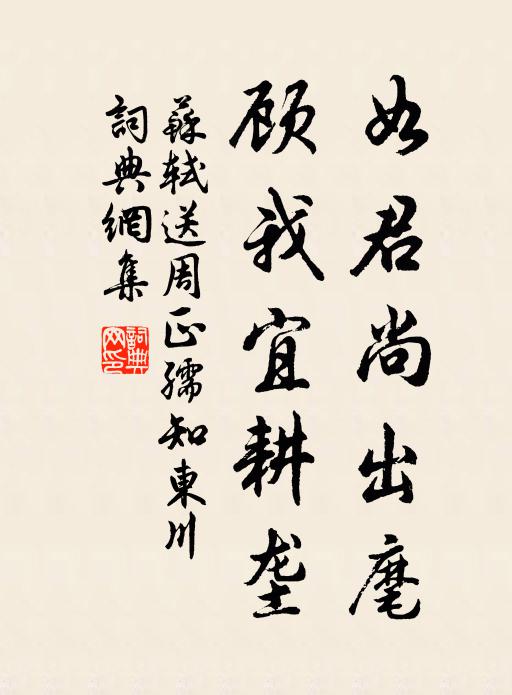 如君尚出麾
顾我宜耕垄
蘇軾送周正孺知東川
詞典網集
詞典网印